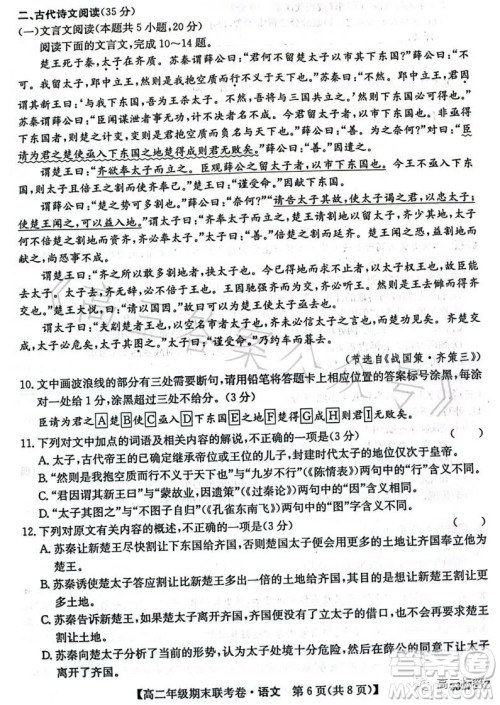 二、古代诗文阅读(35分)
(一)文言文阅读(本题共5小题,20分)
阅读下面的文言文,完成10~14题。
楚王死于秦,太子在齐质。苏秦谓薛公曰:“君何不留楚太子,以市其下东国。”薛公曰:“不可。
我留太子,郢中立王,然则是我抱空质而行不义于天下也。”苏秦曰:“不然。郢中立王,君因
谓其新王曰:‘与我下东国,吾为王杀太子。不然,吾将与三国共立之。’然则下东国必可得也。”
苏秦谓薛公曰:“臣闻谋泄者事无功,计不决者名不成。今君留太子者,以市下东国也。非亟得下
东国者,则楚之计变,变则是君抱空质而负名于天下也。”薛公曰:“善。为之奈何?”对曰:“臣
请为君之楚使亟入下东国之地楚得成则君无败矣。”
谓楚王曰:“齐欲奉太子而立之。臣观薛公之留太子者,以市下东国也。今王不亟入下东国,则
太子且倍王之割而使齐奉己。”楚王曰:“谨受命。”因献下东国。
谓薛公曰:“楚之势可多割也。”薛公曰:“奈何?”“请告太子其故,使太子谒之君,以忠太子,
使楚王闻之,可以益入地。”谓太子曰:“齐奉太子而立之,楚王请割地以留太子,齐少其地。太子
何不倍楚之割地而资齐,齐必奉太子。”太子曰:“善。”倍楚之割而延齐。楚王闻之恐,益割地而献
之,尚恐事不成。
谓楚王曰:“齐之所以敢多割地者,挟太子也。今已得地而求不止者,以太子权王也。故臣能
去太子。太子去,齐无辞,必不倍于王也。王因驰强齐而为交,齐辞,必听王。然则是王去仇而得齐
交也。”楚王大悦,曰:“请以国因。”
谓太子曰:“夫剬楚者王也,以空名市者太子也,齐未必信太子之言也,而楚功见矣。楚交成,
太子必危矣。太子其图之。”太子曰:“谨受命。”乃约车而暮去。
(节选自《战国策·齐策三》)
10. 文中画波浪线的部分有三处需要断句,请用铅笔将答题卡上相应位置的答案标号涂黑,每涂
对一处给1分,涂黑超过三处不给分。(3分)
臣请为君之A楚B使C亟入D下东国E之地F楚G得成H则君I无败矣。
11. 下列对文中加点的词语及相关内容的解说,不正确的一项是(3分) ( )
A. 太子,古代帝王的已确定继承帝位或王位的儿子,封建时代太子的地位仅次于皇帝。
B. “抱空质而行不义”与“九岁不行”(《陈情表》)两句中的“行”字含义不同。
C. “君因谓其新王曰”与“蒙故业,因遗策”(《过秦论》)两句中的“因”字含义不同。
D. “以太子权王也”与“多谢后世人”(《孔雀东南飞》)两句中的“谢”字含义不同。
12. 下列对原文有关内容的概述,不正确的一项是(3分) ( )
A. 苏秦让新楚王尽快割让下东国给齐国,否则,太子将会以更多的土地给齐国,使齐国拥立
太子。
B. 苏秦诱导使楚太子许诺割让比新楚王多一倍的土地给齐国,新楚王听后很恐慌,只好割让
更多的土地。
C. 苏秦告诉新楚王,他能使太子离开齐国,太子离开齐国,齐国就不会再向新楚王索要加倍
的土地。
D. 苏秦对太子说,齐国未必相信他的话,楚国和齐国建立联系,太子就会有危险,因而让太子
离开了齐国。
【高二年级期末联考卷·语文 第6页(共8页)】
《高三答案公众号》